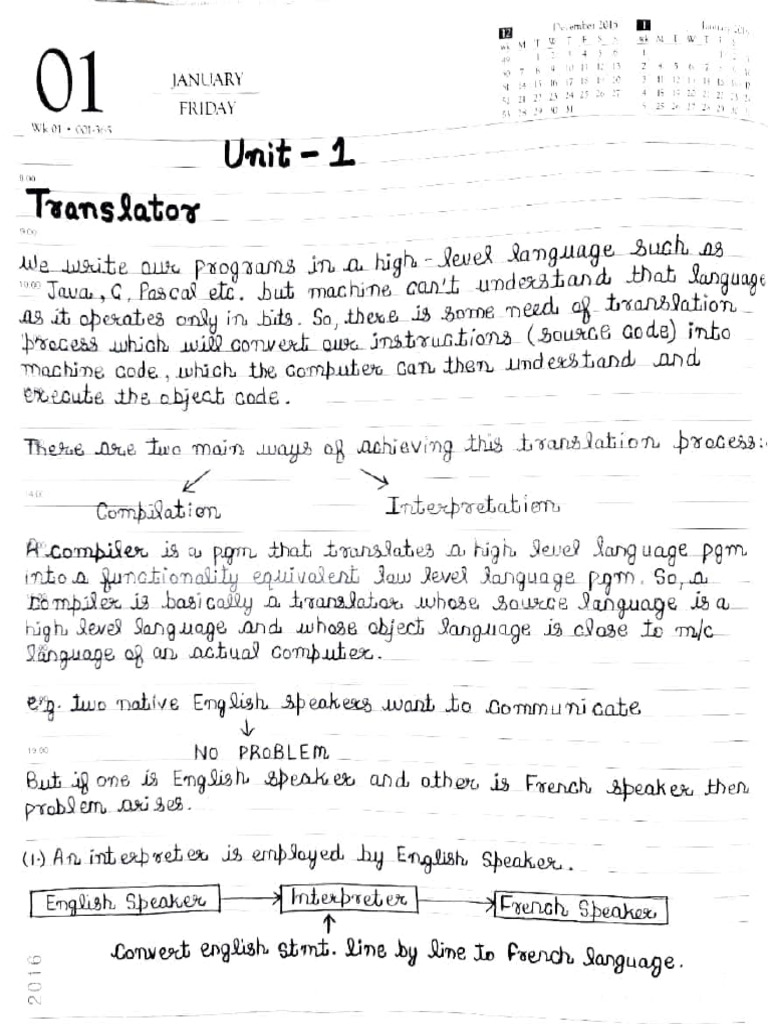 01
JANUARY
FRIDAY
Wk 01 • 001-365
December 2015
January
Unit - 1
8.00
Translator
9.00
We write our programs in a high-level language such as
10.00 Java, C, Pascal etc. but machine can't understand that language
as it operates only in bits. So, there is some need of translation
process which will convert our instructions (source code) into
machine code, which the computer can then understand and
execute the object code.
There are two main ways of achieving this translation process:
Compilation Interpretation
A compiler is a pgm that translates a high level language pgm
into a functionality equivalent law level language pgm. So, a
compiler is basically a translator whose source language is a
high level language and whose object language is close to m/c
language of an actual computer.
e.g. two native English speakers want to communicate
NO PROBLEM
But if one is English speaker and other is French speaker then
problem arises.
(1.) An interpreter is employed by English Speaker.
English Speaker Interpreter French Speaker
Convert english stmt. line by line to french language.
2016